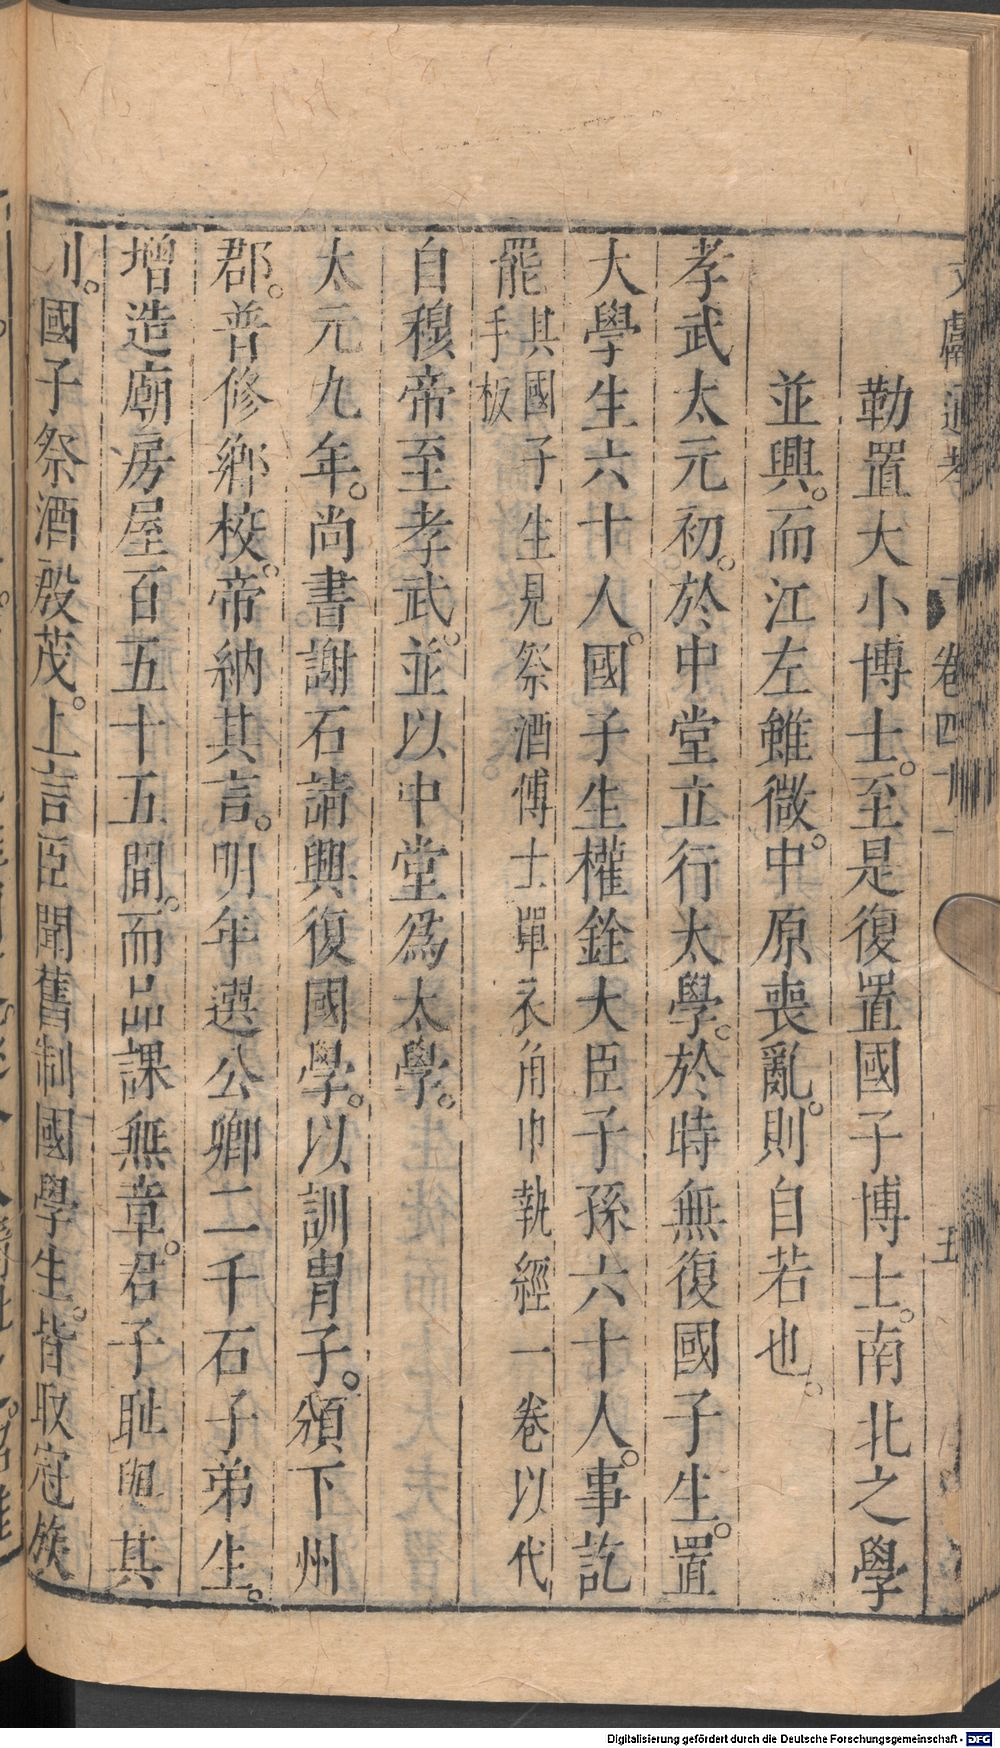 文獻通考 卷四十一 五
勒置大小博士。至是復置國子博士。南北之學
並興。而江左雖微。中原喪亂。則自若也。
孝武太元初。於中堂立行太學。於時無復國子生。置
大學生六十人。國子生權銓大臣子孫六十人。事訖
罷其國子生見祭酒博士單衣角巾執經一卷以代
手板
自穆帝至孝武。並以中堂爲太學。
太元九年。尚書謝石請興復國學。以訓胄子。頒下州
郡。普修鄉校。帝納其言。明年選公卿二千石子弟生。
增造廟房屋百五十五間。而品課無章。君子恥與其
列。國子祭酒殷茂。上言臣聞舊制國學生。皆取冠族
Digitalisierung gefördert durch die Deutsche Forschungsgemeinschaft - DFG